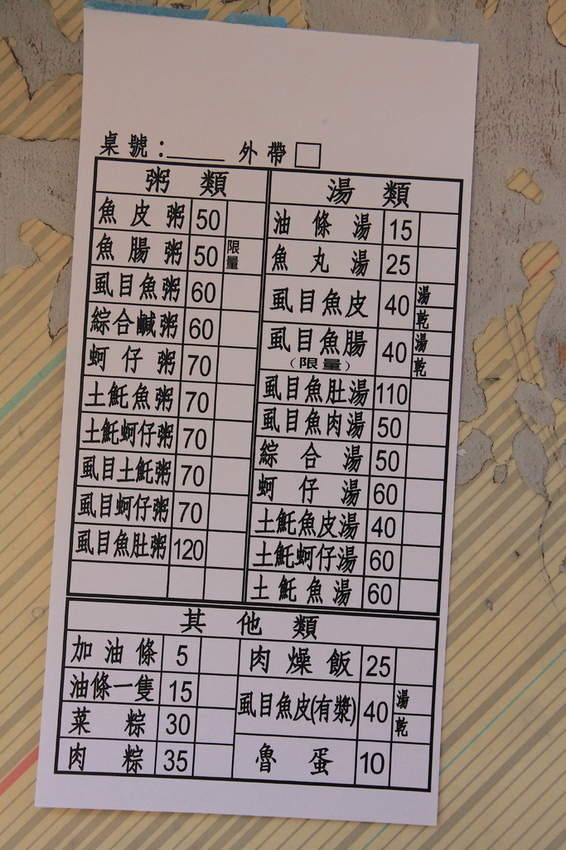 桌號：____ 外帶□
粥類
魚皮粥 50
魚腸粥 50 限量
虱目魚粥 60
綜合鹹粥 60
蚵仔粥 70
土魠魚粥 70
土魠蚵仔粥 70
虱目土魠粥 70
虱目蚵仔粥 70
虱目魚肚粥 120
湯類
油條湯 15
魚丸湯 25
虱目魚皮 40 湯 乾
虱目魚腸 40 湯 乾
(限量)
虱目魚肚湯 110
虱目魚肉湯 50
綜合湯 50
蚵仔湯 60
土魠魚皮湯 40
土魠蚵仔湯 60
土魠魚湯 60
其他類
加油條 5
油條一隻 15
菜粽 30
肉粽 35
肉燥飯 25
虱目魚皮(有漿) 40 湯 乾
魯蛋 10